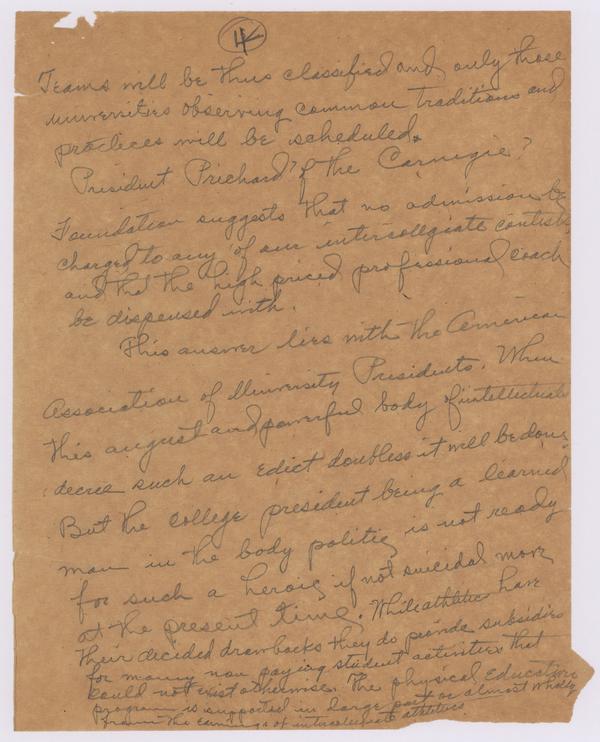 4
Teams will be thus classified and only those
universities observing common traditions and
practices will be scheduled.
President Prichard? of the Carnegie?
Foundation suggests that no admission be
charged to any of our intercollegiate contests
and that the high priced professional coach
be dispensed with.
This answer lies with the American
Association of University Presidents. When
this august and powerful body of intellectuals
decree such an edict doubless it will be done.
But the college president being a learned
man in the body politic, is not ready
for such a heroic, if not suicidal move
at the present time. While athletics have
their decided drawbacks they do provide subsidies
for many non paying student activities that
could not exist otherwise. The physical Education
program is supported in large part or almost wholly
from the earnings of intercollegiate athletics.